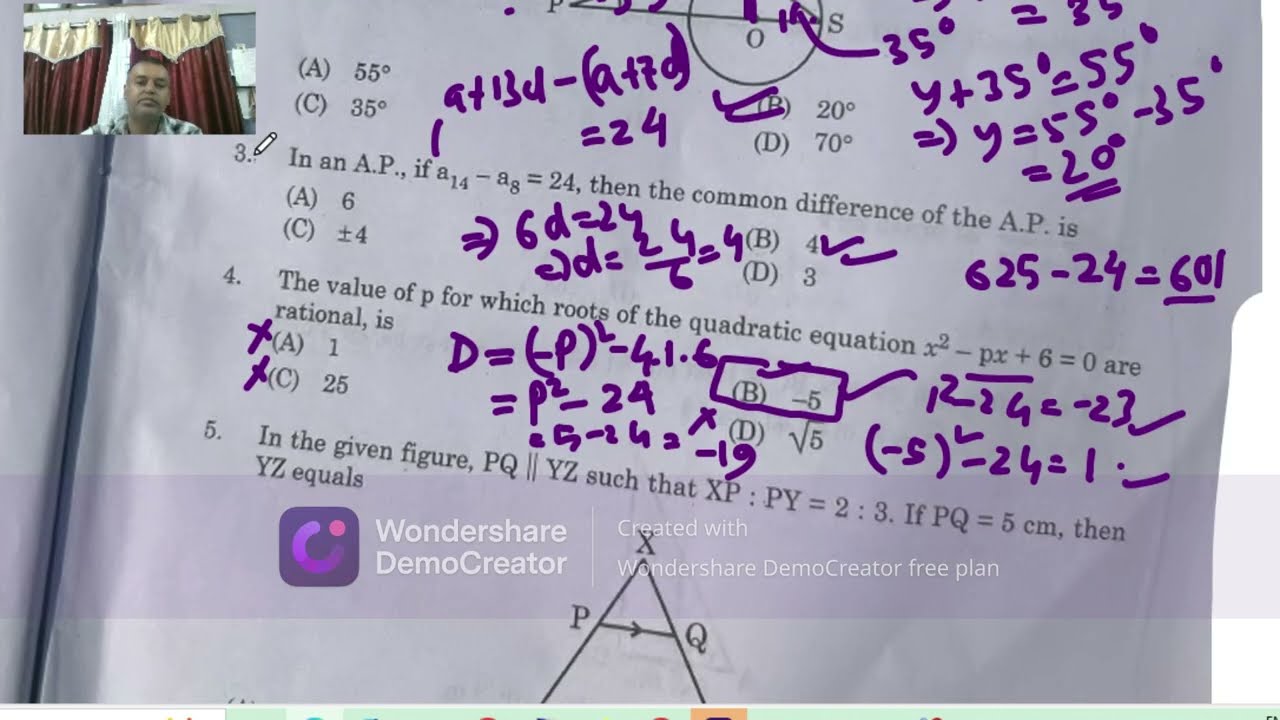 P
O
S
= 35
35°
(A) 55°
(B) 20°
(C) 35°
(D) 70°
a+13d-(a+7d)
=24
y+35°=55°
=) y=55°-35°
=20°
3. In an A.P., if a₁₄ – a₈ = 24, then the common difference of the A.P. is
(A) 6
(B) 4
(C) ±4
(D) 3
=) 6d=24
=)d=24/6=4
625-24=601
4. The value of p for which roots of the quadratic equation x² – px + 6 = 0 are
rational, is
(A) 1
(B) –5
(C) 25
(D) √5
D=(-P)²-4.1.6
=P²-24
=5-24=-19
1²-24=-23
(-5)²-24=1
5. In the given figure, PQ || YZ such that XP : PY = 2 : 3. If PQ = 5 cm, then
YZ equals
Wondershare
DemoCreator
Created with
Wondershare DemoCreator free plan
X
P
Q